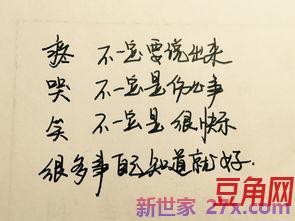 疼 不一定要说出来
哭 不一定是伤心事
笑 不一定是很快乐
很多事自己知道就好.
豆角网
新世家 27x.com